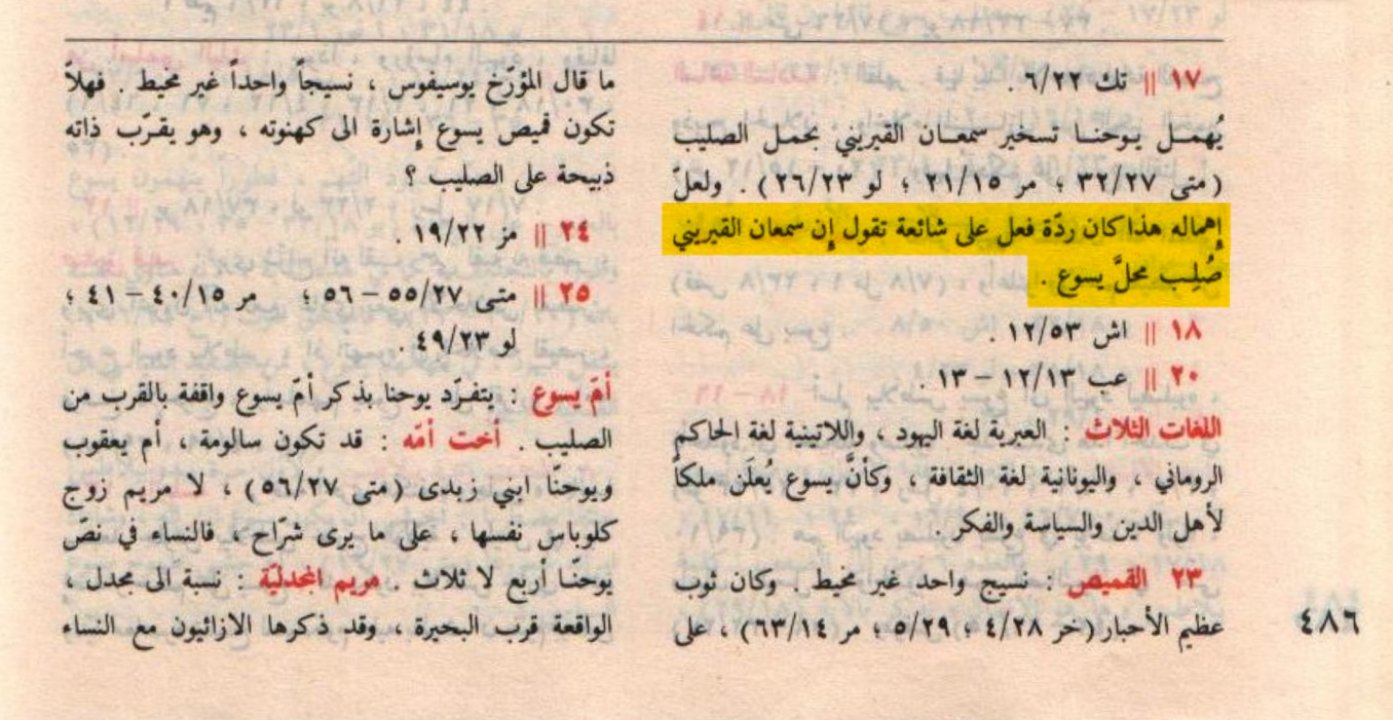 ١٧ || تك ٦/٢٢ .
يُهمــل يوحنــا تسخير سمعــان القيريني بحمــل الصليب
(متى ٣٢/٢٧ ؛ مر ٢١/١٥ ؛ لو ٢٦/٢٣) . ولعلّ
إهماله هذا كان ردّة فعل على شائعة تقول إن سمعان القيريني
صُلِب محلَّ يسوع .
١٨ || اش ١٢/٥٣ .
٢٠ || عب ١٢/١٣ – ١٣ .
اللغات الثلاث : العبرية لغة اليهود ، واللاتينية لغة الحاكم
الروماني ، واليونانية لغة الثقافة ، وكأنَّ يسوع يُعلَن ملكاً
لأهل الدين والسياسة والفكر .
٢٣ القميص : نسيج واحد غير مخيط . وكان ثوب
عظيم الأحبار (خر ٤/٢٨ ؛ ٥/٢٩ ؛ مر ٦٣/١٤) ، على
ما قال المؤرّخ يوسيفوس ، نسيجاً واحداً غير مخيط . فهلاّ
تكون قميص يسوع إشارة الى كهنوته ، وهو يقرّب ذاته
ذبيحة على الصليب ؟
٢٤ || مز ١٩/٢٢ .
٢٥ || متى ٥٥/٢٧ – ٥٦ ؛ مر ٤٠/١٥ – ٤١ ؛
لو ٤٩/٢٣ .
أمّ يسوع : يتفـرّد يوحنا بذكر أمّ يسوع واقفة بالقرب من
الصليب . أخت أمّه : قد تكون سالومة ، أم يعقوب
ويوحنّا ابني زبدى (متى ٥٦/٢٧) ، لا مريم زوج
كلوباس نفسها ، على ما يرى شرّاح ، فالنساء في نصّ
يوحنّـا أربع لا ثلاث . مريم المجدليّة : نسبة الى مجدل ،
الواقعة قرب البحيرة ، وقد ذكرها الازائيون مع النساء
٤٨٦